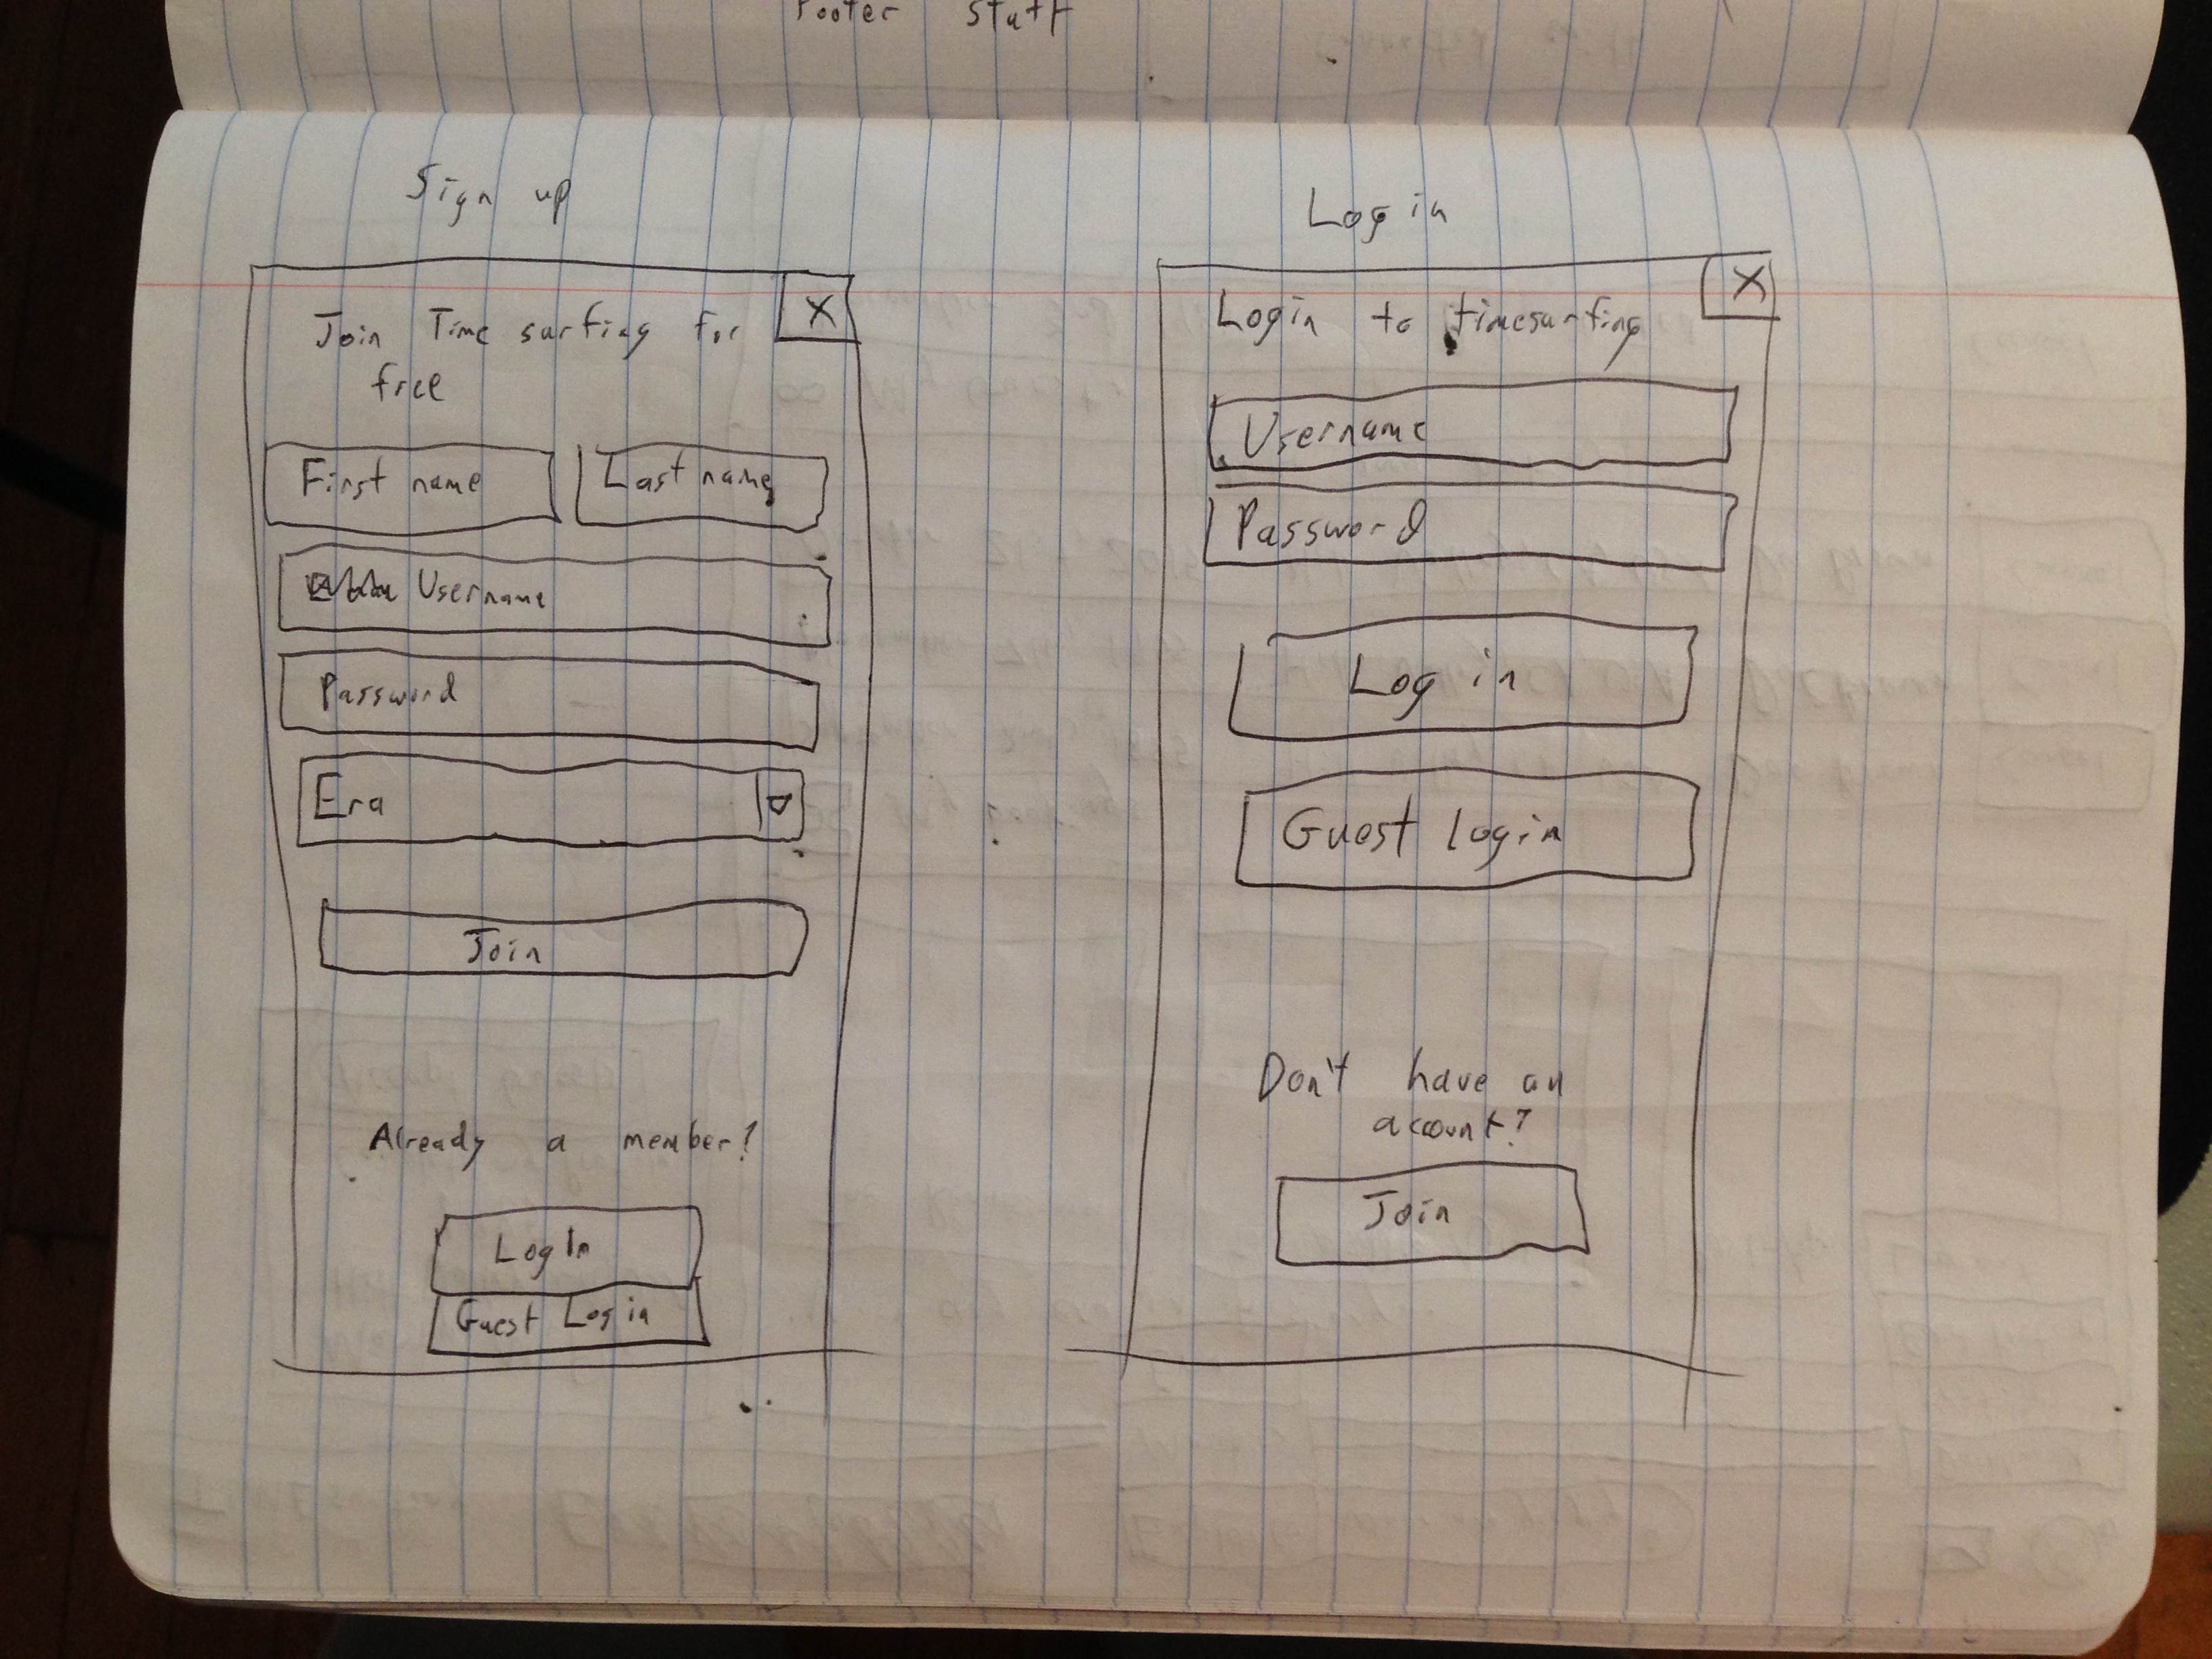 Sign up
Join Time surfing for
free
X
First name
Last name
Username
Password
Era
Join
Already a member?
Log In
Guest Login
Log in
Login to timesurfing
X
Username
Password
Log in
Guest login
Don't have an
account?
Join
Footer Stuff